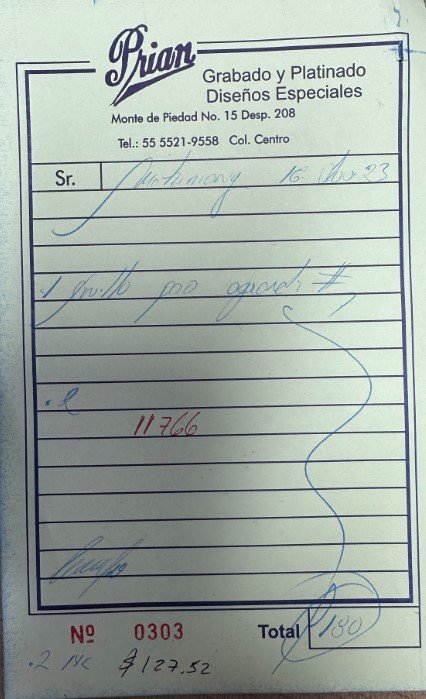 Prian
Grabado y Platinado
Diseños Especiales
Monte de Piedad No. 15 Desp. 208
Tel.: 55 5521-9558 Col. Centro
Sr. 16 Nov. 23
1 Anillo para agrandar #
.2
11766
Nº 0303 Total $180
.2 NC $127.52